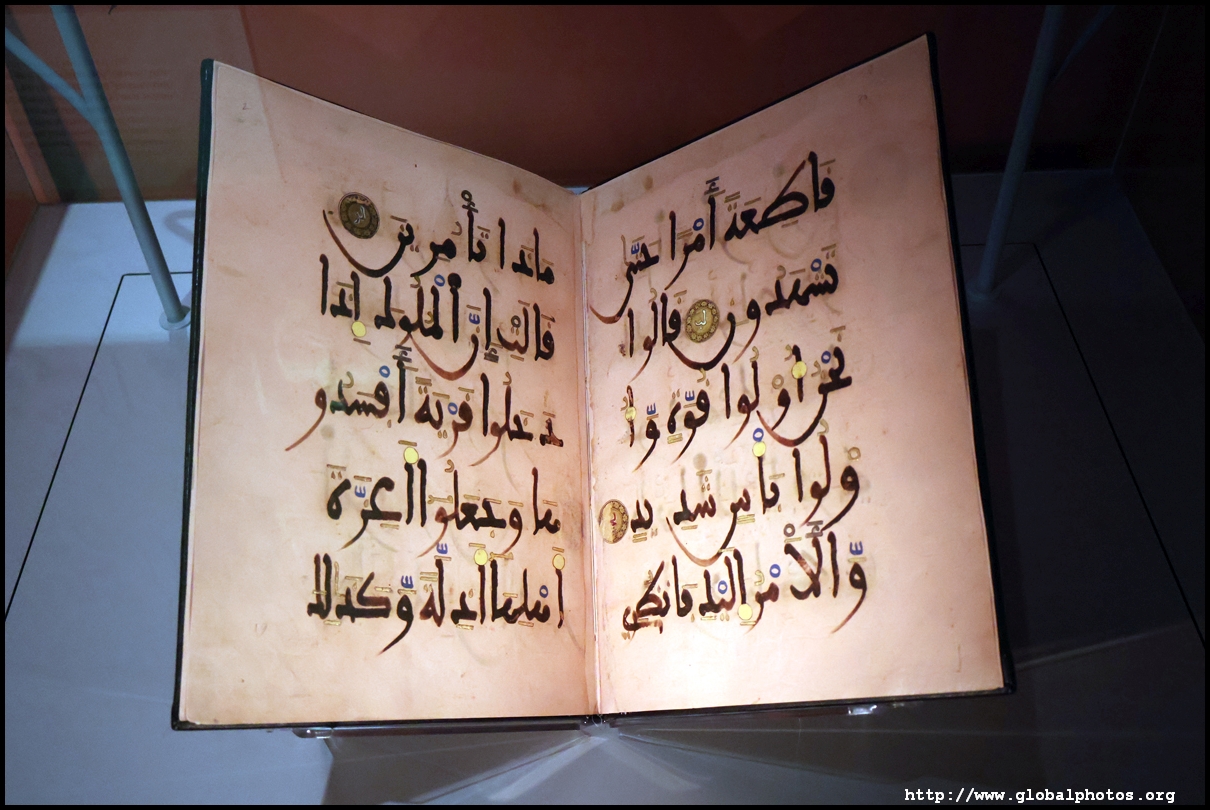 قَاطِعَةً أَمْرًا حَتَّى
تَشْهَدُونِ قَالُوا
نَحْنُ أُوْلُوا قُوَّةٍ وَّأُ
وْلُوا بَأْسٍ شَدِيدٍ
وَّالْأَمْرُ إِلَيْكِ فَانظُرِي
مَاذَا تَأْمُرِينَ
قَالَتْ إِنَّ الْمُلُوكَ إِذَا
دَخَلُوا قَرْيَةً أَفْسَدُو
هَا وَجَعَلُوا أَعِزَّةَ
أَهْلِهَا أَذِلَّةً وَّكَذَلِكَ
http://www.globalphotos.org